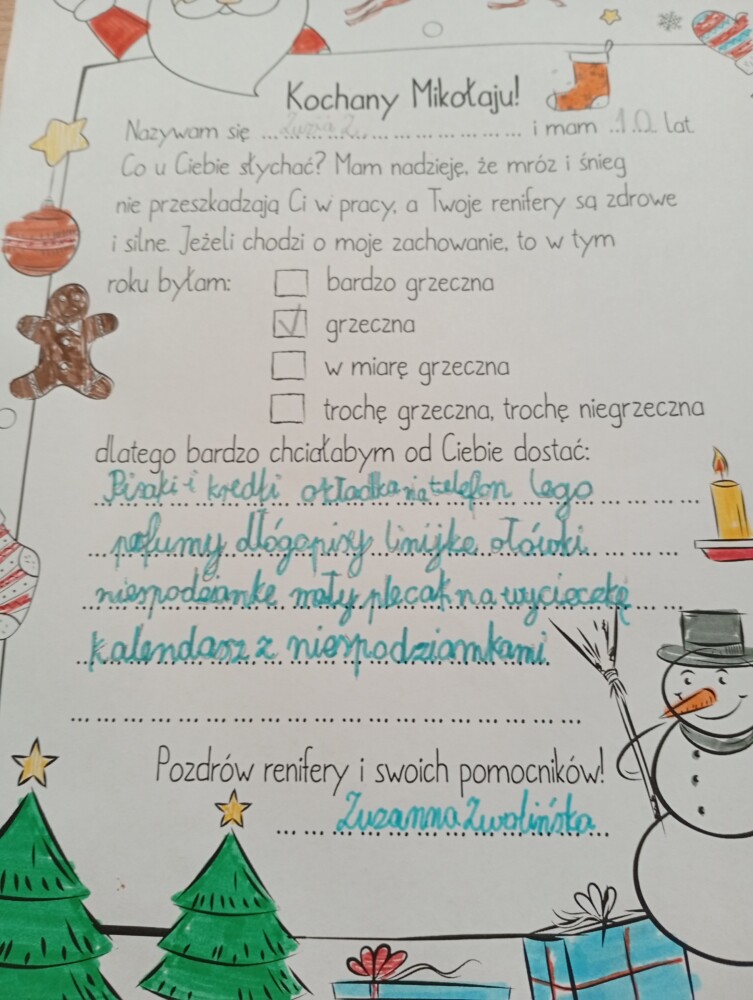 Kochany Mikołaju!
Nazywam się ... Zuzia Z. ... i mam ..10 lat
Co u Ciebie słychać? Mam nadzieję, że mróz i śnieg
nie przeszkadzają Ci w pracy, a Twoje renifery są zdrowe
i silne. Jeżeli chodzi o moje zachowanie, to w tym
roku byłam: bardzo grzeczna
grzeczna
w miarę grzeczna
trochę grzeczna, trochę niegrzeczna
dlatego bardzo chciałabym od Ciebie dostać:
Pisaki i kredki okładka na telefon lego
pefumy dłógopisy linijke ołówki
niespodzianke mały plecak na wycieczkę
kalendasz z niespodziamkami
Pozdrów renifery i swoich pomocników!
Zuzanna Zwolińska